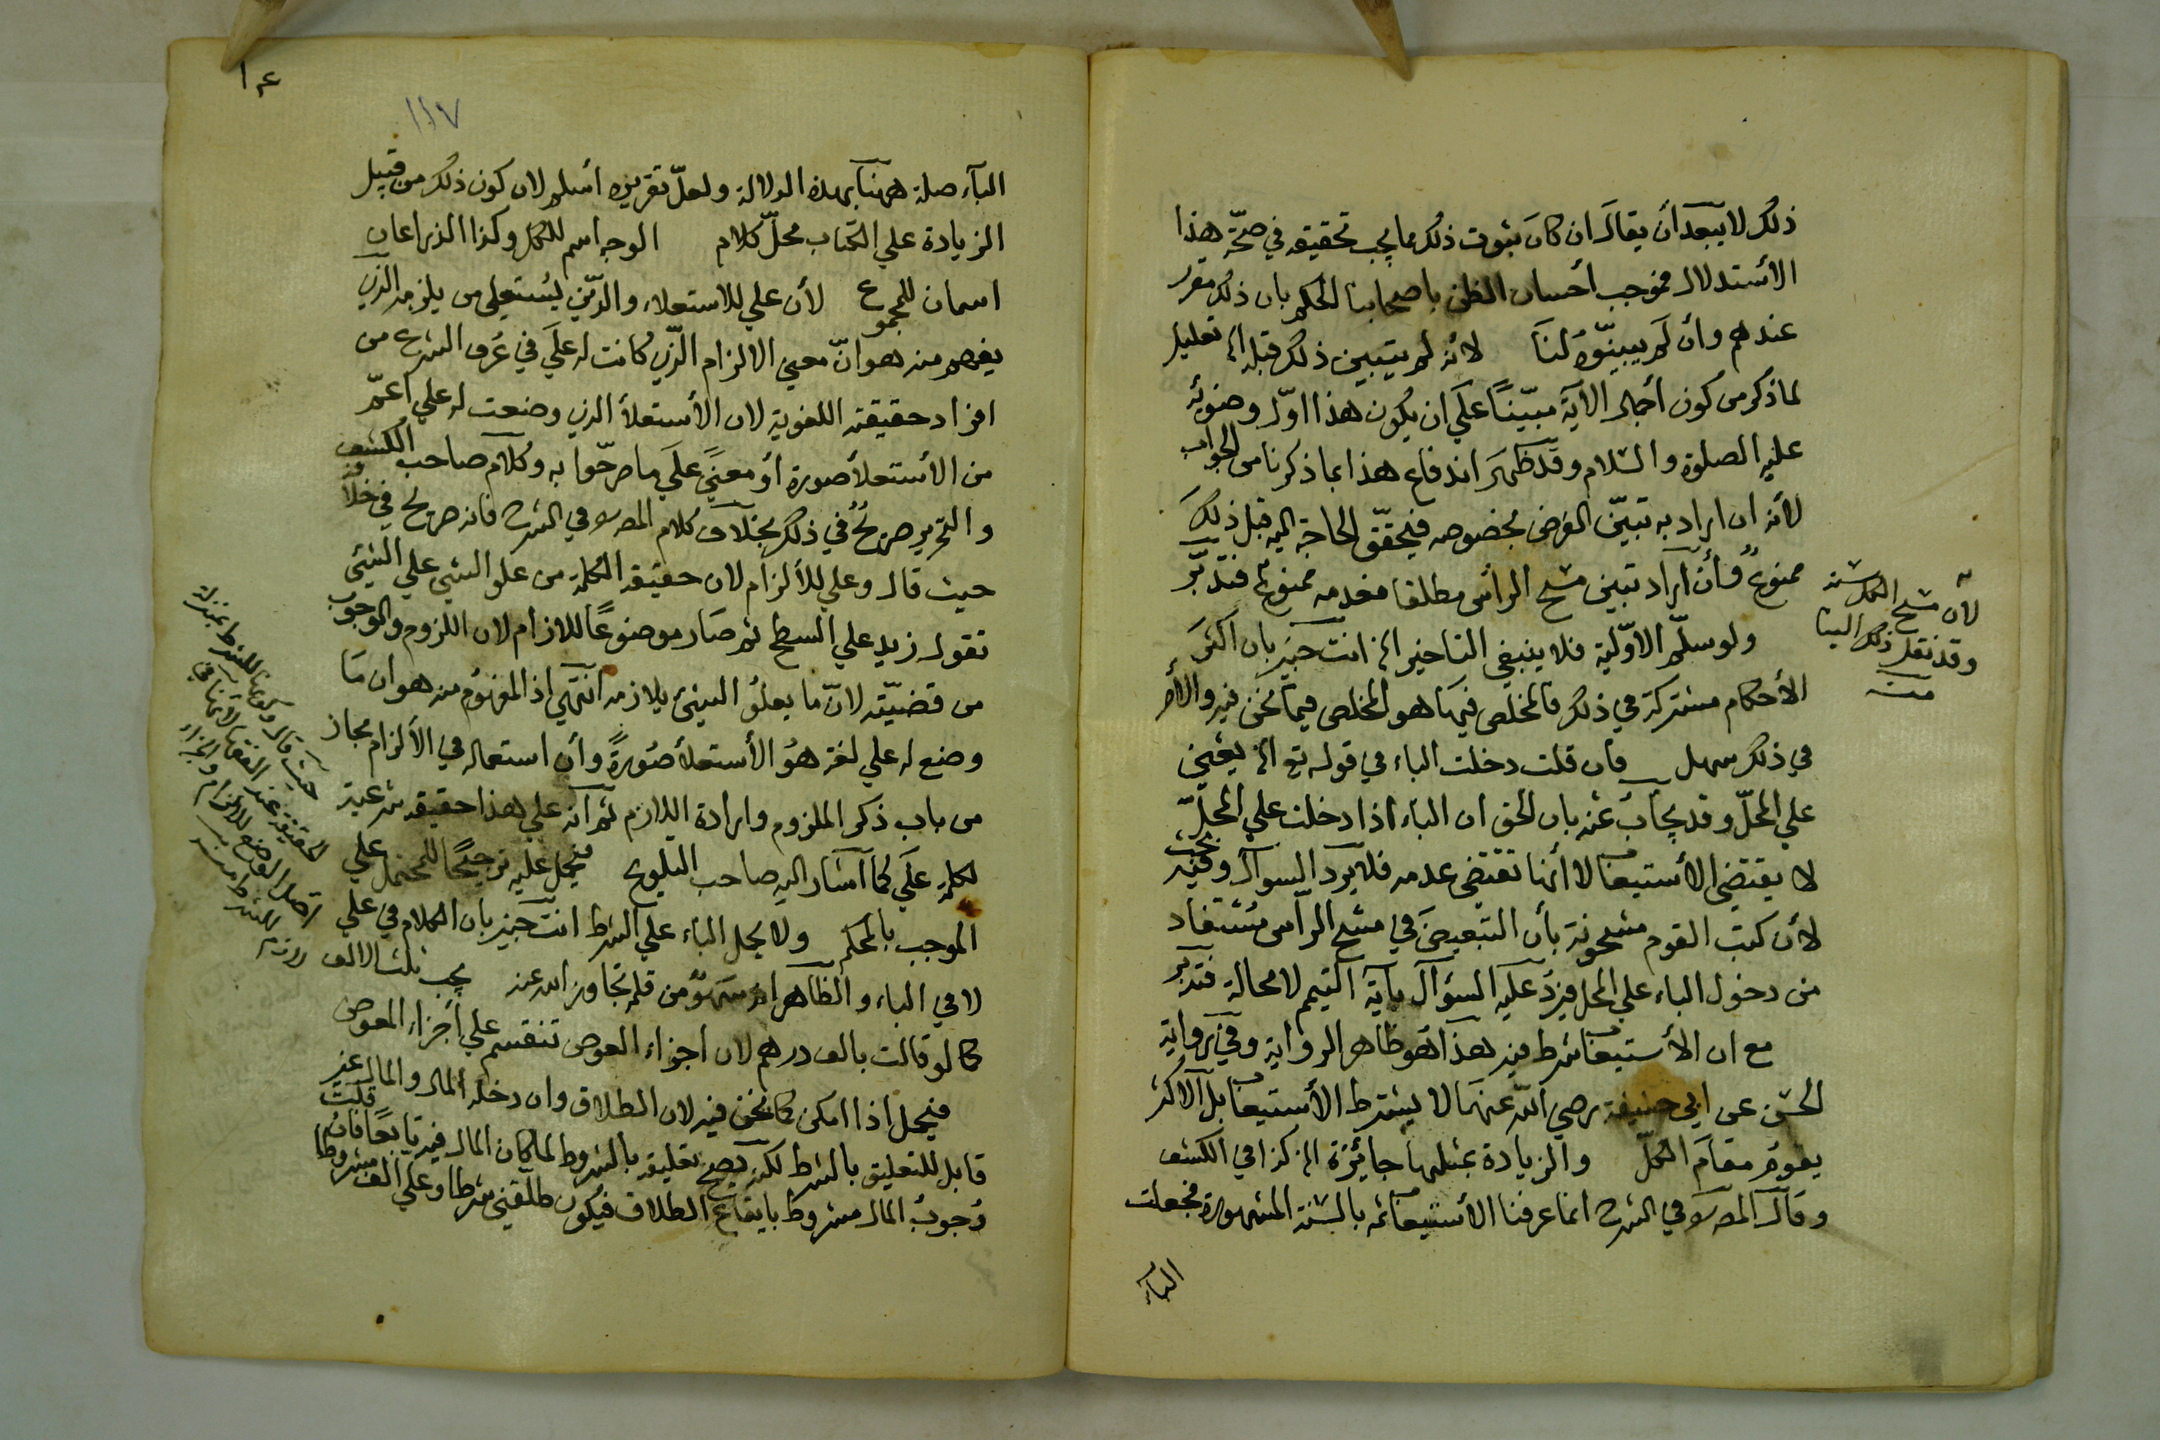 ذلك لا يبعد أن يقال ان كان ثبوت ذلك مما يجب تحقيقه في صحّة هذا
الأستدلال فموجب أحسان الظن باصحابنا الحكم بان ذلك مقرر
عندهم وأن لم يبيّنوه لنا لأنه لم يتبين ذلك قبله الخ تعليل
لما ذكر من كون أجمال الآية مبيّنا على ان يكون هذا اوّل وضوئه
عليه الصلوة والسلام وقد ظهر اندفاع هذا بما ذكرنا من الجواب
لأنه ان اراد به تبيّن الفرض بخصوصه فتحقّق الحاجة اليه قبل ذلك
ممنوع وأن أراد تبيّن مسح الرأس مطلقا فعدمه ممنوع فتدبّر
ولو سلّم الاوّلية فلا ينبغي التاخير الخ انت خبير بان اكثر
الأحكام مشتركة في ذلك فالمخلص فيها هو المخلص فيما نحن فيه والأمر
في ذلك سهل فان قلت دخلت الباء في قوله تع الخ يعني
على المحلّ وقد يجاب عنه بان الحق ان الباء اذا دخلت على المحلّ
لا يقتضي الأستيعاب لا أنها تقتضي عدمه فلا يرد السوال وفيه بحث
لأن كتب القوم مشحونة بأن التبعيض في مسح الرأس مستفاد
من دخول الباء على المحل فيرد عليه السؤال بآية التيمم لا محالة فتدبر
مع ان الأستيعاب شرط فيه هذا هو ظاهر الرواية وفي رواية
الحسن عن ابي حنيفة رضي الله عنهما لا يشترط الأستيعاب بل الاكثر
يقوم مقام الكلّ والزيادة بمثلها جائزة الخ كذا في الكشف
وقال المص في الشرح انما عرفنا الأستيعاب ثمه بالسنة المشهورة فجعلت
الباء
لأن مسح الكل سنة
وقد نقل ذلك الينا
منه
١١٧
الباء صلة ههنا بهذه الدلالة ولعلّ تقريره اسلم لان كون ذلك من قبيل
الزيادة على الكتاب محلّ كلام الوجه اسم للكل وكذا الذراعان
اسمان للمجموع لأن على للاستعلاء والدّين يستعلي من يلزمه الذي
يفهم منه هو انّ معنى الالزام الذي كانت له على في عرف الشرع من
افراد حقيقته اللغوية لان الأستعلاء الذي وضعت له على اعمّ
من الأستعلاء صورة أو معنى على ما صرّحوا به وكلام صاحب الكشف
والتحرير صريح في ذلك بخلاف كلام المص في الشرح فانه صريح في خلافه
حيث قال وعلى للألزام لان حقيقة الكلمة من علو الشيء على الشيئ
تقول زيد على السطح ثم صار موضوعا للالزام لان اللزوم والوجوب
من قضيّته لانّ ما يعلو الشيئ يلازمه انتهى اذ المفهوم منه هو ان ما
وضع له على لغة هو الأستعلاء صورة وأن استعماله في الألزام مجاز
من باب ذكر الملزوم وارادة اللازم ثم انه على هذا حقيقة شرعية
لكلمة على كما اشار اليه صاحب التلويح فيحمل عليه ترجيحا للمحتمل على
الموجب بالمحكم ولا يحمل الباء على الشرط انت خبير بان الكلام في على
لا في الباء والظاهر انه سهو من قلمه تجاوز الله عنه يجب ثلث الالف
كما لو قالت بالف درهم لان اجزاء العوض تنقسم على أجزاء المعوض
فيحمل اذا امكن كما نحن فيه لان الطلاق وان دخله المال والمال غير
قابل للتعليق بالشرط لكن يصح تعليقه بالشروط لما كان المال فيه تابعا فان قلت
وجوب المال مشروط بايقاع الطلاق فيكون طلقني شرطا وعلى الف مشروطا
حيث قال وكونها للشرط بمنزلة
الحقيقة عند الفقهاء لانها في
اصل الوضع للالزام والجزاء
لازم للشرط منه